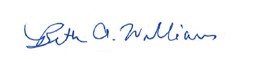 Beth A. Williams